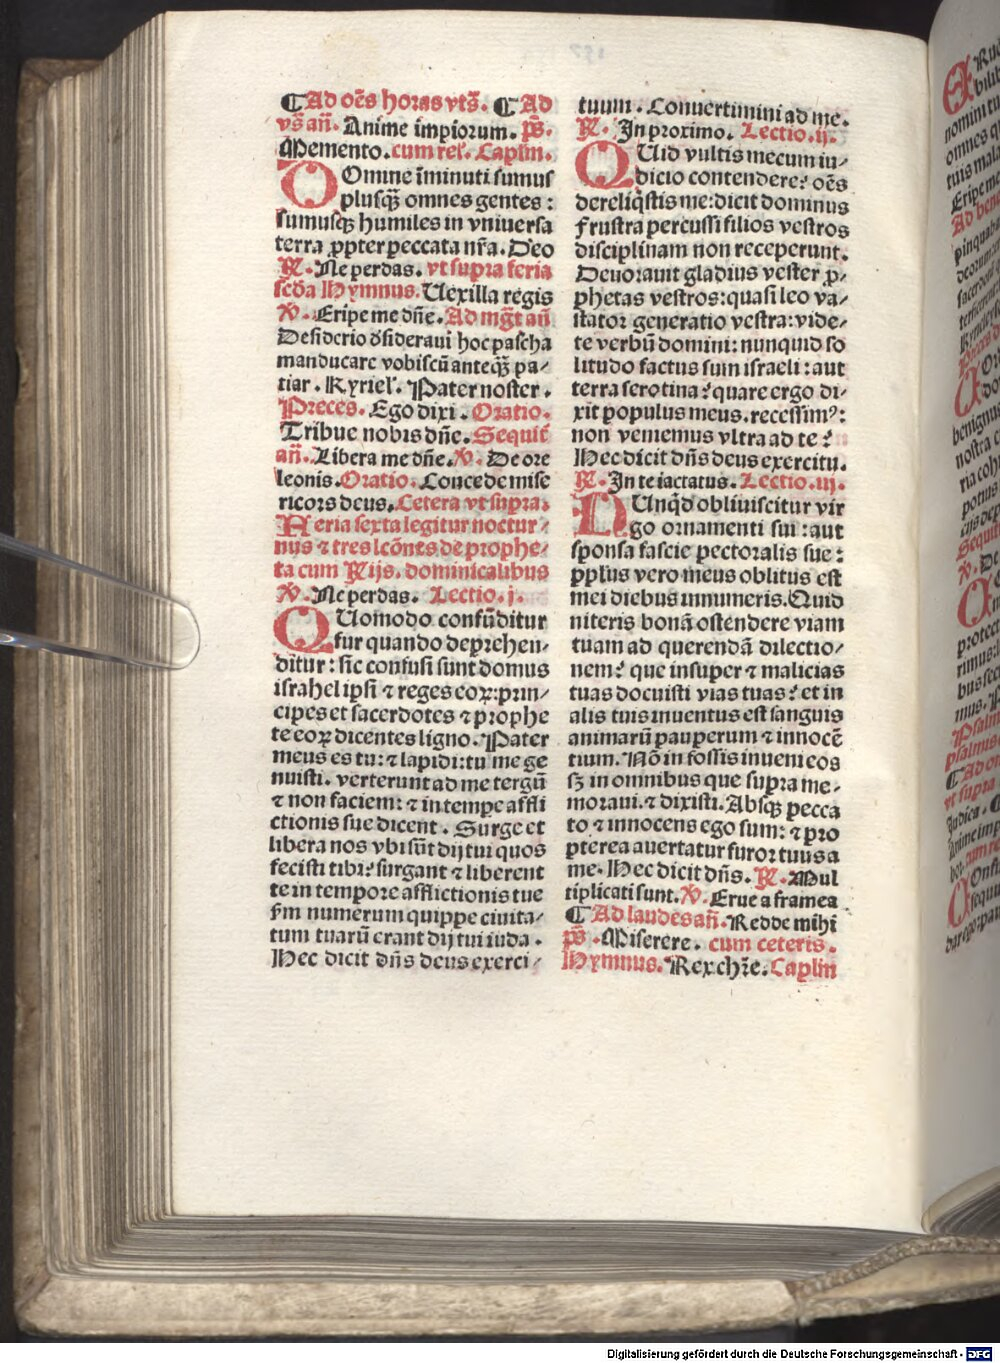 ¶ Ad oēs horas vts̄. ¶ Ad
vs̄ an̄. Anime impiorum. ps̄.
Memento. cum rel'. Caplm̄.
DOmine īminuti sumus
plusqꝫ omnes gentes :
sumusqꝫ humiles in vniuersa
terra ꝓpter peccata nr̄a. Deo
℟. Ne perdas. vt supra feria
scd̄a Hymnus. Uexilla regis
℣. Eripe me dn̄e. Ad mgt̄ an̄
Desiderio d̄sideraui hoc pascha
manducare vobiscū anteqꝫ pa⸗
tiar. Kyriel'. Pater noster.
Preces. Ego dixi. Oratio.
Tribue nobis dn̄e. Sequit̄
an̄. Libera me dn̄e. ℣. De ore
leonis. Oratio. Concede mise
ricors deus. Cetera vt supra.
Feria sexta legitur noctur⸗
nus ⁊ tres lcōnes de prophe⸗
ta cum ℟ijs. dominicalibus
℣. Ne perdas. Lectio. j.
QUomodo confūditur
fur quando deprehen⸗
ditur : sic confusi sunt domus
israhel ipsi ⁊ reges eoꝝ: prin⸗
cipes et sacerdotes ⁊ prophe
te eoꝝ dicentes ligno. Pater
meus es tu: ⁊ lapidi: tu me ge
nuisti. verterunt ad me tergū
⁊ non faciem: ⁊ in tempe affli
ctionis sue dicent. Surge et
libera nos vbi sūt dij tui quos
fecisti tibi? surgant ⁊ liberent
te in tempore afflictionis tue
fm̄ numerum quippe ciuita⸗
tum tuarū erant dij tui iuda.
Hec dicit dn̄s deus exerci⸗
tuum. Conuertimini ad me.
℟. In proximo. Lectio. ij.
QUid vultis mecum iu⸗
dicio contendere? oēs
dereliq̄stis me: dicit dominus
frustra percussi filios vestros
disciplinam non receperunt.
Deuorauit gladius vester ꝓ⸗
phetas vestros: quasi leo va⸗
stator generatio vestra: vide⸗
te verbū domini: nunquid so
litudo factus sum israeli : aut
terra serotina? quare ergo di⸗
xit populus meus. recessimꝰ:
non veniemus vltra ad te ?
Hec dicit dn̄s deus exercitu.
℟. In te iactatus. Lectio. iij.
NUnqd̄ obliuiscitur vir
go ornamenti sui : aut
sponsa fascie pectoralis sue :
pplus vero meus oblitus est
mei diebus innumeris. Quid
niteris bonā ostendere viam
tuam ad querendā dilectio⸗
nem? que insuper ⁊ malicias
tuas docuisti vias tuas? et in
alis tuis inuentus est sanguis
animarū pauperum ⁊ innocē
tium. Nō in fossis inueni eos
sꝫ in omnibus que supra me⸗
moraui. ⁊ dixisti. Absqꝫ pecca
to ⁊ innocens ego sum: ⁊ pro
pterea auertatur furor tuus a
me. Hec dicit dn̄s. ℟. Mul
tiplicati sunt. ℣. Erue a framea
¶ Ad laudes an̄. Redde mihi
ps̄. Miserere. cum ceteris.
Hymnus. Rex chr̄e. Caplm̄
Digitalisierung gefördert durch die Deutsche Forschungsgemeinschaft - DFG